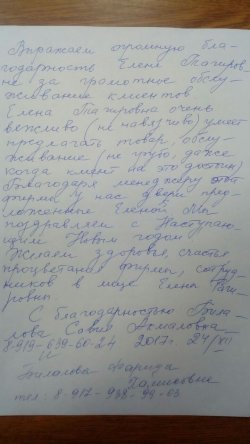 Выражаем огромную бла-
годарность Елене Тагиров
не за грамотное обслу-
живание клиентов
Елена Тагировна очень
вежливо (не навязчиво) умеет
предлагать товар, обслу-
живание (не грубо, даже
когда клиент на это достоин)
Благодаря менеджеру этой
фирмы у нас двери пред-
ложенные Еленой. Мы
поздравляем с Наступаю-
щим Новым годом
Желаем здоровья, счастья,
процветания фирмы, сотруд-
ников в лице Елена Таги-
ровны.
С благодарностью Била-
лова София
8-919-639-60-24 2017г. 24/XII
и
Билалова Фарида
тел: 8-917-938-99-03